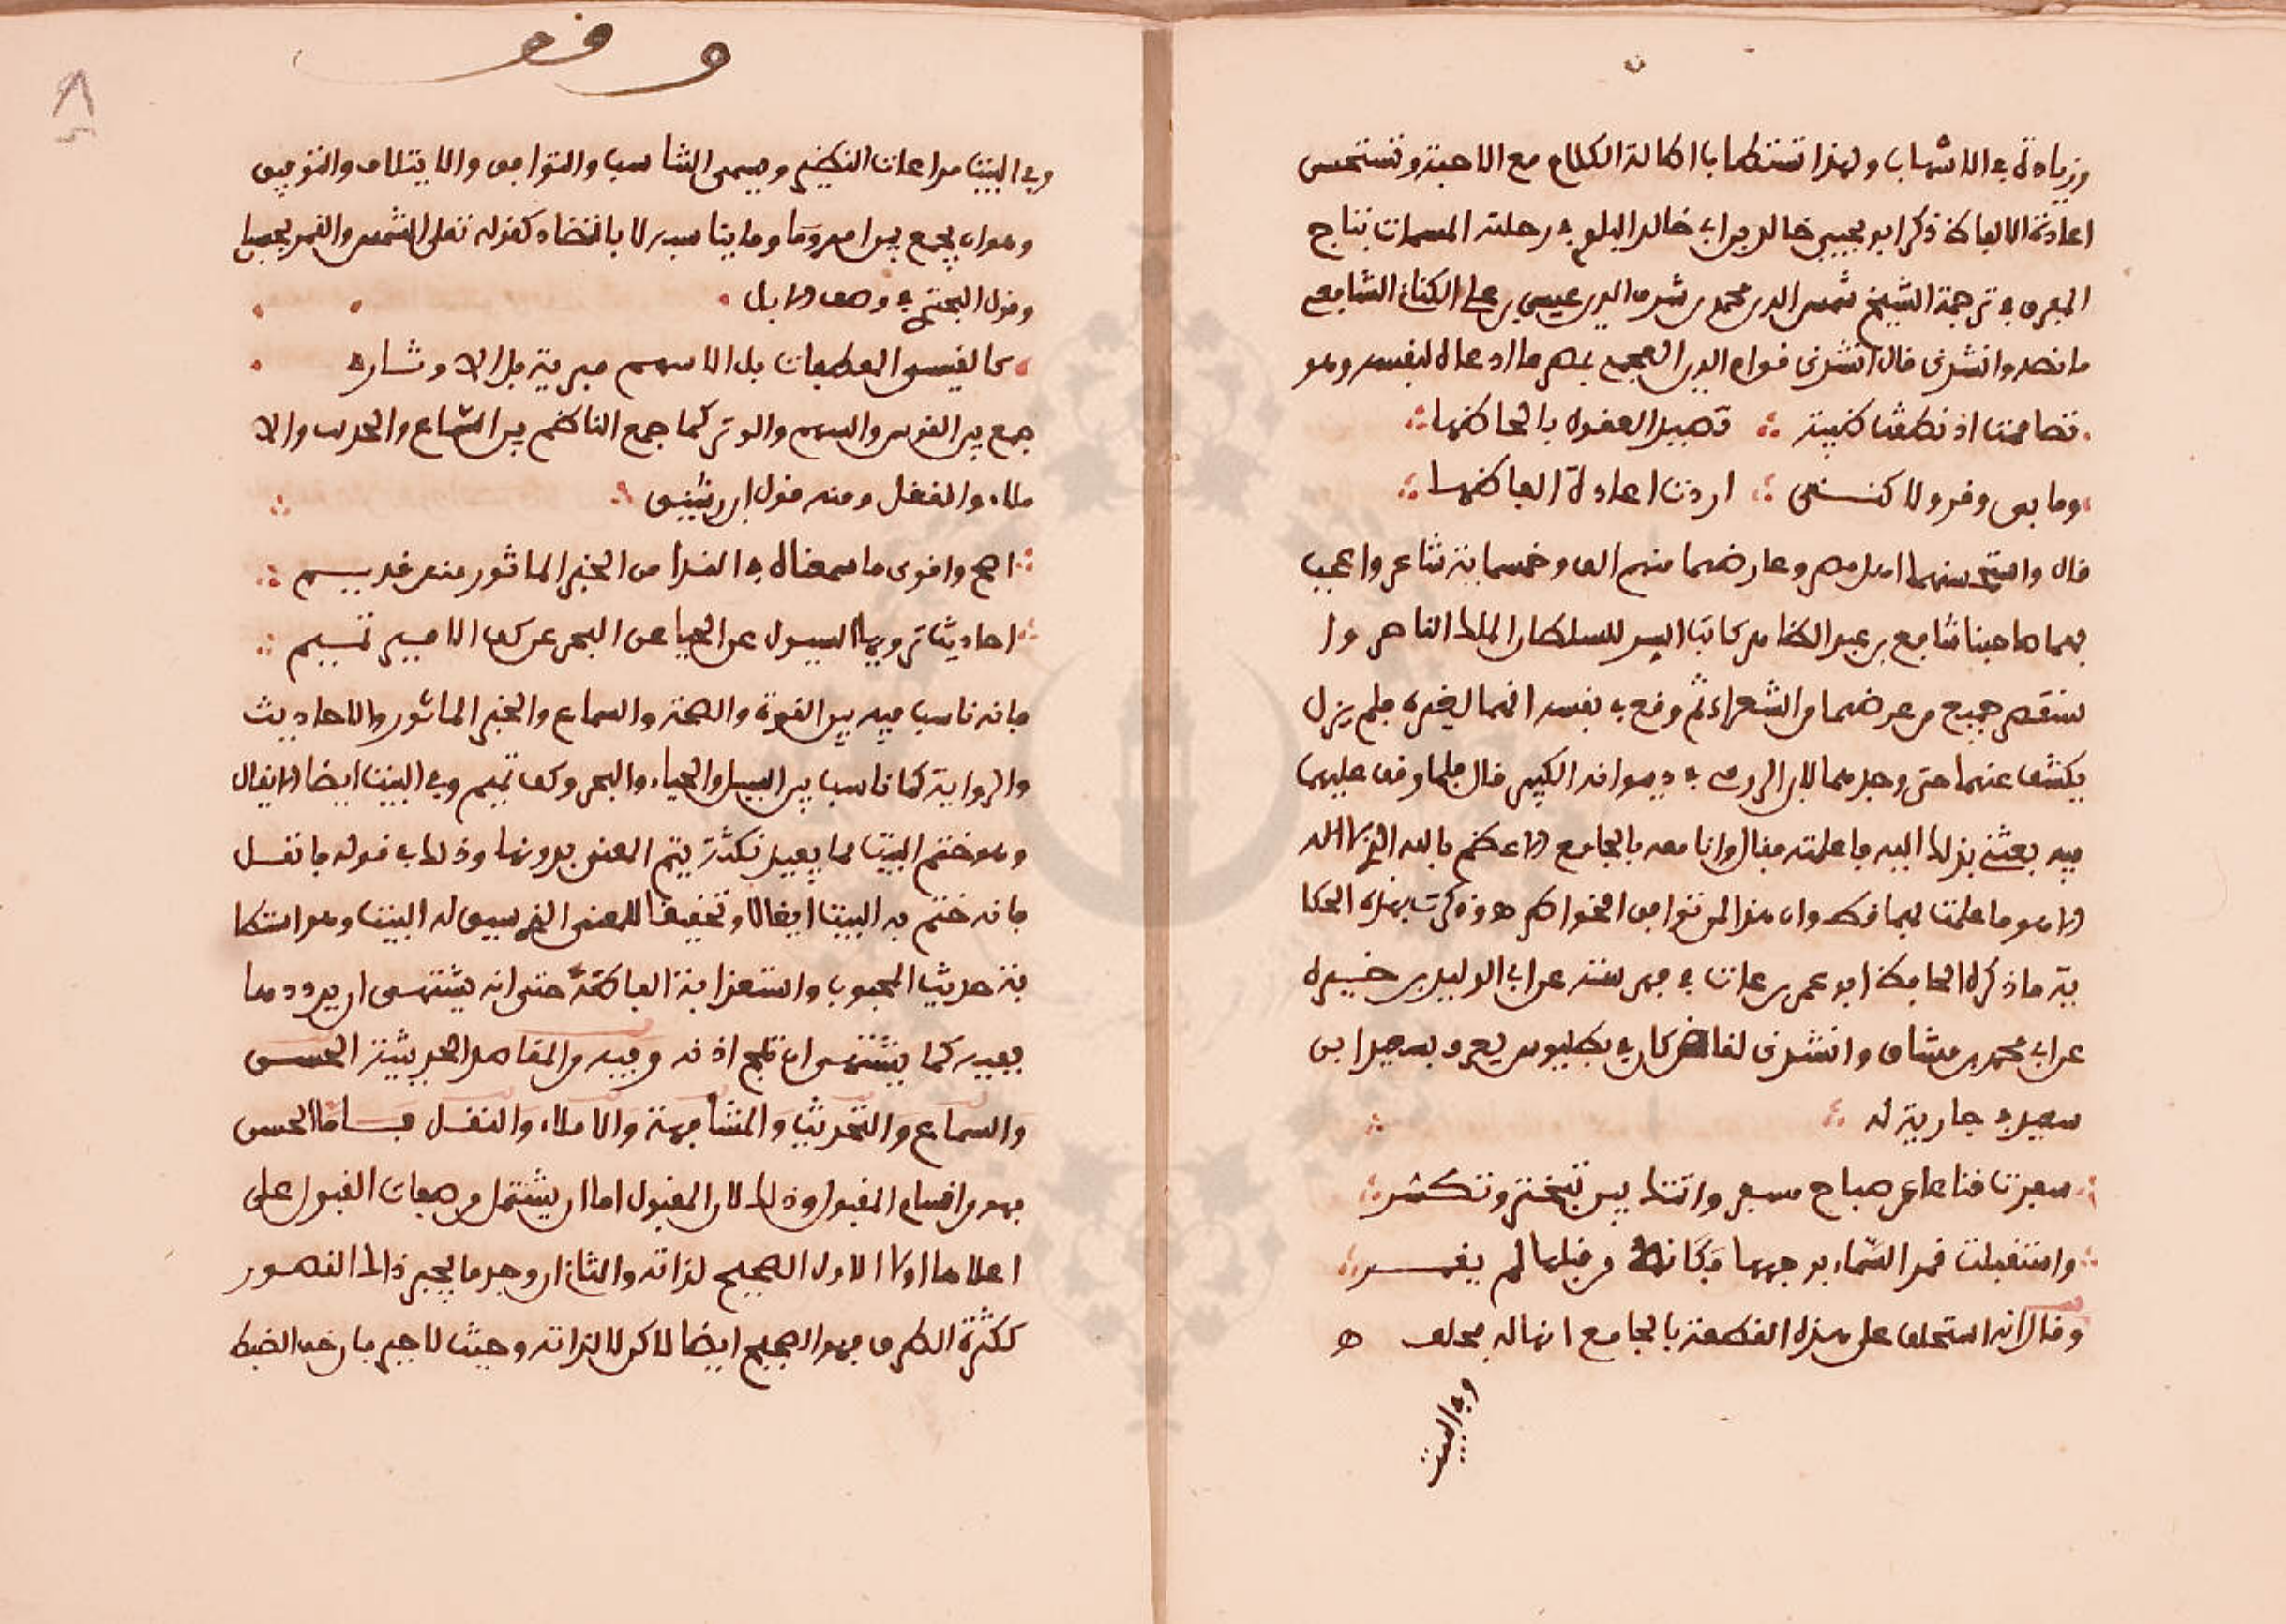 وزيادة في الاسهاب ولهذا تستطاب اطالة الكلام مع الاحبة وتستحسن
اعادة الالفاظ ذكر ابو خالد بن ابي خالد البلوي في رحلته المسمات بتاج
المفرق في ترجمة الشيخ شمس الدين محمد بن شرف الدين عيسى بن علي الكناني الشافعي
ما نصه وانشدني قال انشدني قوام الدين العجمي بمصر ما ادعاه لنفسه وهو
تصاممت اذ نطقت ظبية تصيد العقول بالحاظها
وما بي وقر ولاكنني اردت اعادة الفاظها
قال واستحسنهما اهل مصر وعارضهما منهم الف وخمسماية شاعر واعجب
بهما صاحبنا شافع بن عبد الظاهر كاتب السر للسلطان الملك الناصر وا
ستقصى جميع من عرضهما من الشعراء ثم وقع في نفسه انهما لغيره فلم يزل
يكشف عنهما حتى وجدهما لابن الرومي في ديوانه الكبير قال فلما وقف عليهما
فيه بعثني بذلك اليه فاعلمته فقال وانا معه بالجامع الاعظم بالله الذي لا اله
الا هو ما علمت بهما قط وان هذا لمن توافق الخواطر ه وذكرت بهذه الحكا
ية ما ذكره الحافظ ابو عمر بن عات في فهرسته عن ابي الوليد بن خيره
عن ابي محمد بن مشاق وانشدني لقاض كان في بطليوس يعرف بصهر ابن
سعيد في جارية له
سفرت قناعا عن صباح مسفر واتتك بين تبختر وتكسر
واستقبلت قمر السماء بوجهها فكانه من قبلها لم يقمر
وقال انه استحلف على هذه القطعة بالجامع انها له فحلف ه
وفي البيت
وقف
وفي البيت مراعات النظير ويسمى التناسب والتوافق والايتلاف والتوفيق
وهو ان يجمع بين امر وما وما يناسبه لا بالتضاد كقوله تعلى الشمس والقمر بحسبان
وقول البحتري في وصف الابل
كالقسي المعطفات بل الاسهم مبرية بل الاوتار
جمع بين القوس والسهم والوتر كما جمع الناظم بين السماع والحديث والا
ملاء والنقل ومنه قول ابن رشيق
اصح واقوى ما سمعناه في الندا من الخبر الماثور منذ قديم
احاديث ترويها السيول عن الحيا عن البحر عن كف الامير تميم
فانه ناسب فيه بين القوة والصحة والسماع والخبر الماثور والاحاديث
والرواية كما ناسب بين السيل والحياء والبحر وكف تميم وفي البيت ايضا الايغال
وهو ختم البيت بما يفيد نكتة يتم المعنى بدونها وذلك في قوله ما نقل
فانه ختم به البيت ايغالا وتحقيقا للمعنى الذي سيق له البيت وهو استطا
بة حديث المحبوب واستعذابة الفاظه حتى انه يشتهي ان يردد هذا
بفيه كما يشتهي ان تلج اذنه وفيه من المقاصد الحديثية الحسن
والسماع والتحديث والمشافهة والاملاء والنقل فاما الحسن
فهو من اقسام المقبول وذلك لان المقبول اما ان يشتمل من صفات القبول على
اعلاها او لا الاول الصحيح لذاته والثاني ان وجد ما يجبر ذلك القصور
ككثرة الطرق فهو الصحيح ايضا لاكن لا لذاته وحيث لا جبر فان خف الضبط